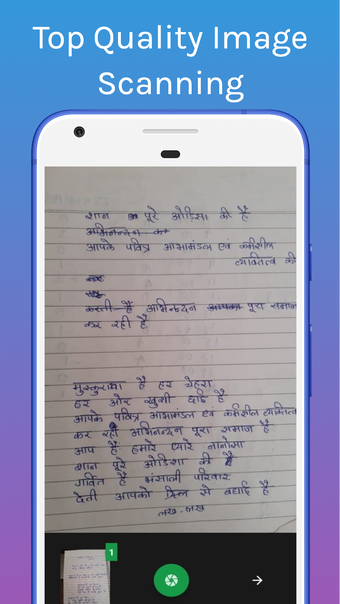 Top Quality Image
Scanning
शान पूरे ओडिसा की है
अभिनन्दन क
आपके पवित्र आभामंडल एवं कर्मशील
व्यक्तित्व की
करती है अभिनन्दन आपका पूरा समाज
कर रही है
मुस्कुराया है हर चेहरा
हर ओर खुशी छाई है
आपके पवित्र आभामंडल एवं कर्मशील व्यक्तित्व
कर रही अभिनन्दन पूरा समाज है
आप है हमारे प्यारे नानोसा
शान पूरे ओडिशा की है
गर्वित है भंसाली परिवार
देती आपको दिल से बधाई है
लख-लख
1